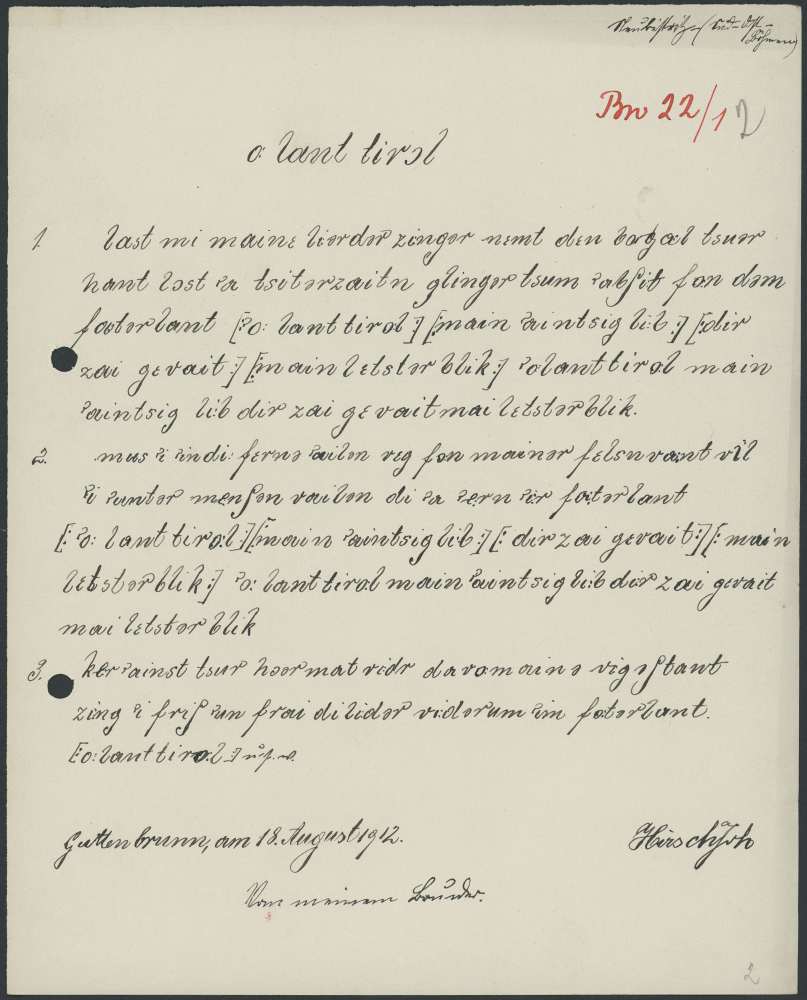 Neubistritz (Süd-Ost-
Böhmen)
Bm 22/1 2
o: lant tirɔl
1. last mi mainɛ liərdər zingər nɛmt den bogəl tsuər
hant lɔst ʔa tsitərzaitn glingər tsum ʔabʃit fon dəm
foətərlant [:ʔo: lant tirɔl:] [:main ʔaintsig li:b:] [:dir
zai gɛvait:] [:main lɛtstər blik:] ʔolant tirɔl main
ʔaintsig li:b dir zai gɛvait mai lɛtstər blik.
2. mus ʔi ʔindi: fɛrnə ʔailən vɛg fon mainər fɛlsnvant vil
ʔi ʔuntər mɛnʃən vailən di ʔa ʔern ʔir foətərlant
[: ʔo: lant tirɔl:] [:main ʔaintsig li:b:] [: dir zai gɛvait:] [: main
lɛtstər blik:] ʔo: lant tirɔl main ʔaintsig li:b dir zai gɛvait
mai lɛtstər blik
3. ker ʔainst tsur hoərmat vidr davomainə vigəʃtant
zing ʔi friʃ ʔun frai di lidər vidərum ʔim fotərlant.
[:o: lant tirɔl:] u.s.w.
Guttenbrunn, am 18. August 1912.
Hirsch Joh
Von meinem Bruder.
2